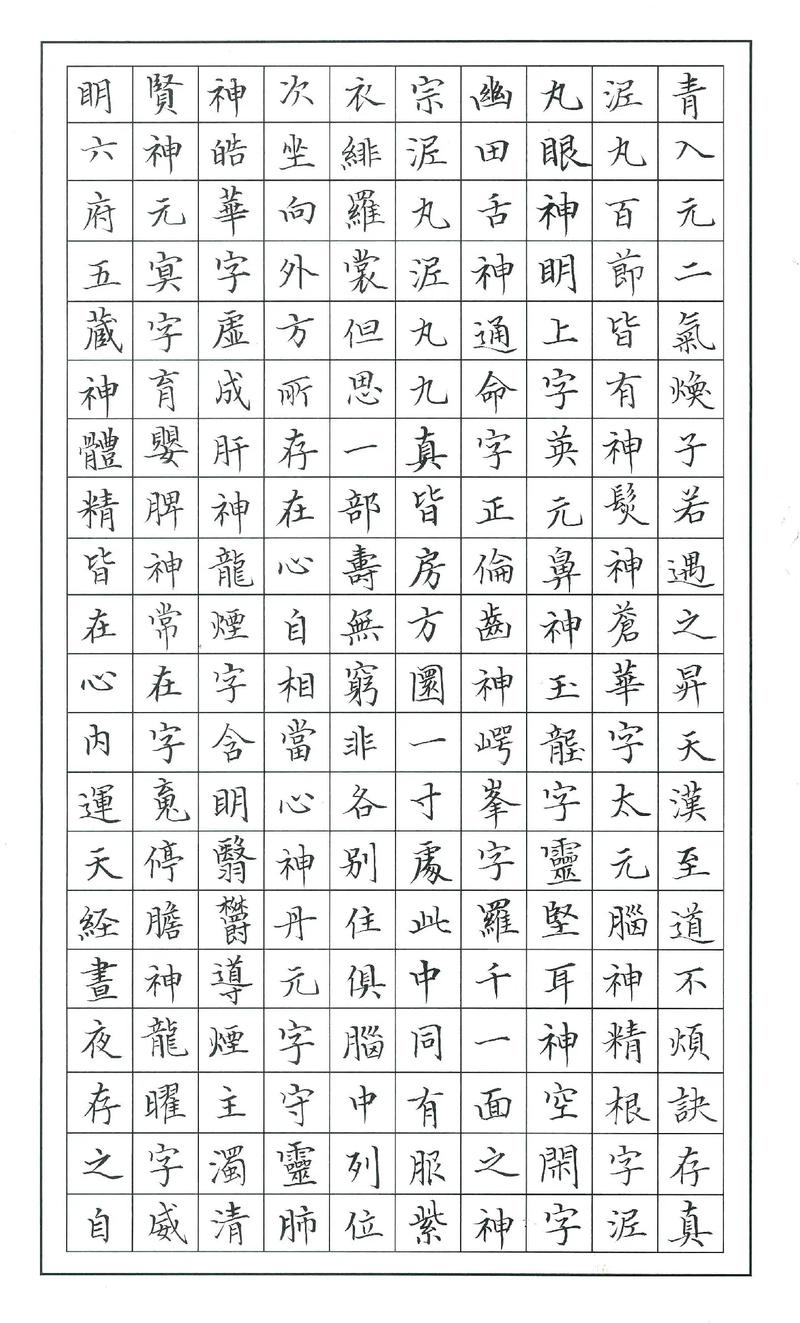 青入元二氣煥子若遇之昇天漢至道不煩訣存真
泥丸百節皆有神髮神蒼華字太元腦神精根字泥
丸眼神明上字英元鼻神玉壟字靈堅耳神空閑字
幽田舌神通命字正倫齒神崿峯字羅千一面之神
宗泥丸泥丸九真皆房方圓一寸處此中同有服紫
衣緋羅裳但思一部壽無窮非各別住俱腦中列位
次坐向外方所存在心自相當心神丹元字守靈肺
神皓華字虛成肝神龍煙字含明翳鬱導煙主濁清
賢神元冥字育嬰脾神常在字魂停膽神龍曜字威
明六府五藏神體精皆在心内運天経晝夜存之自